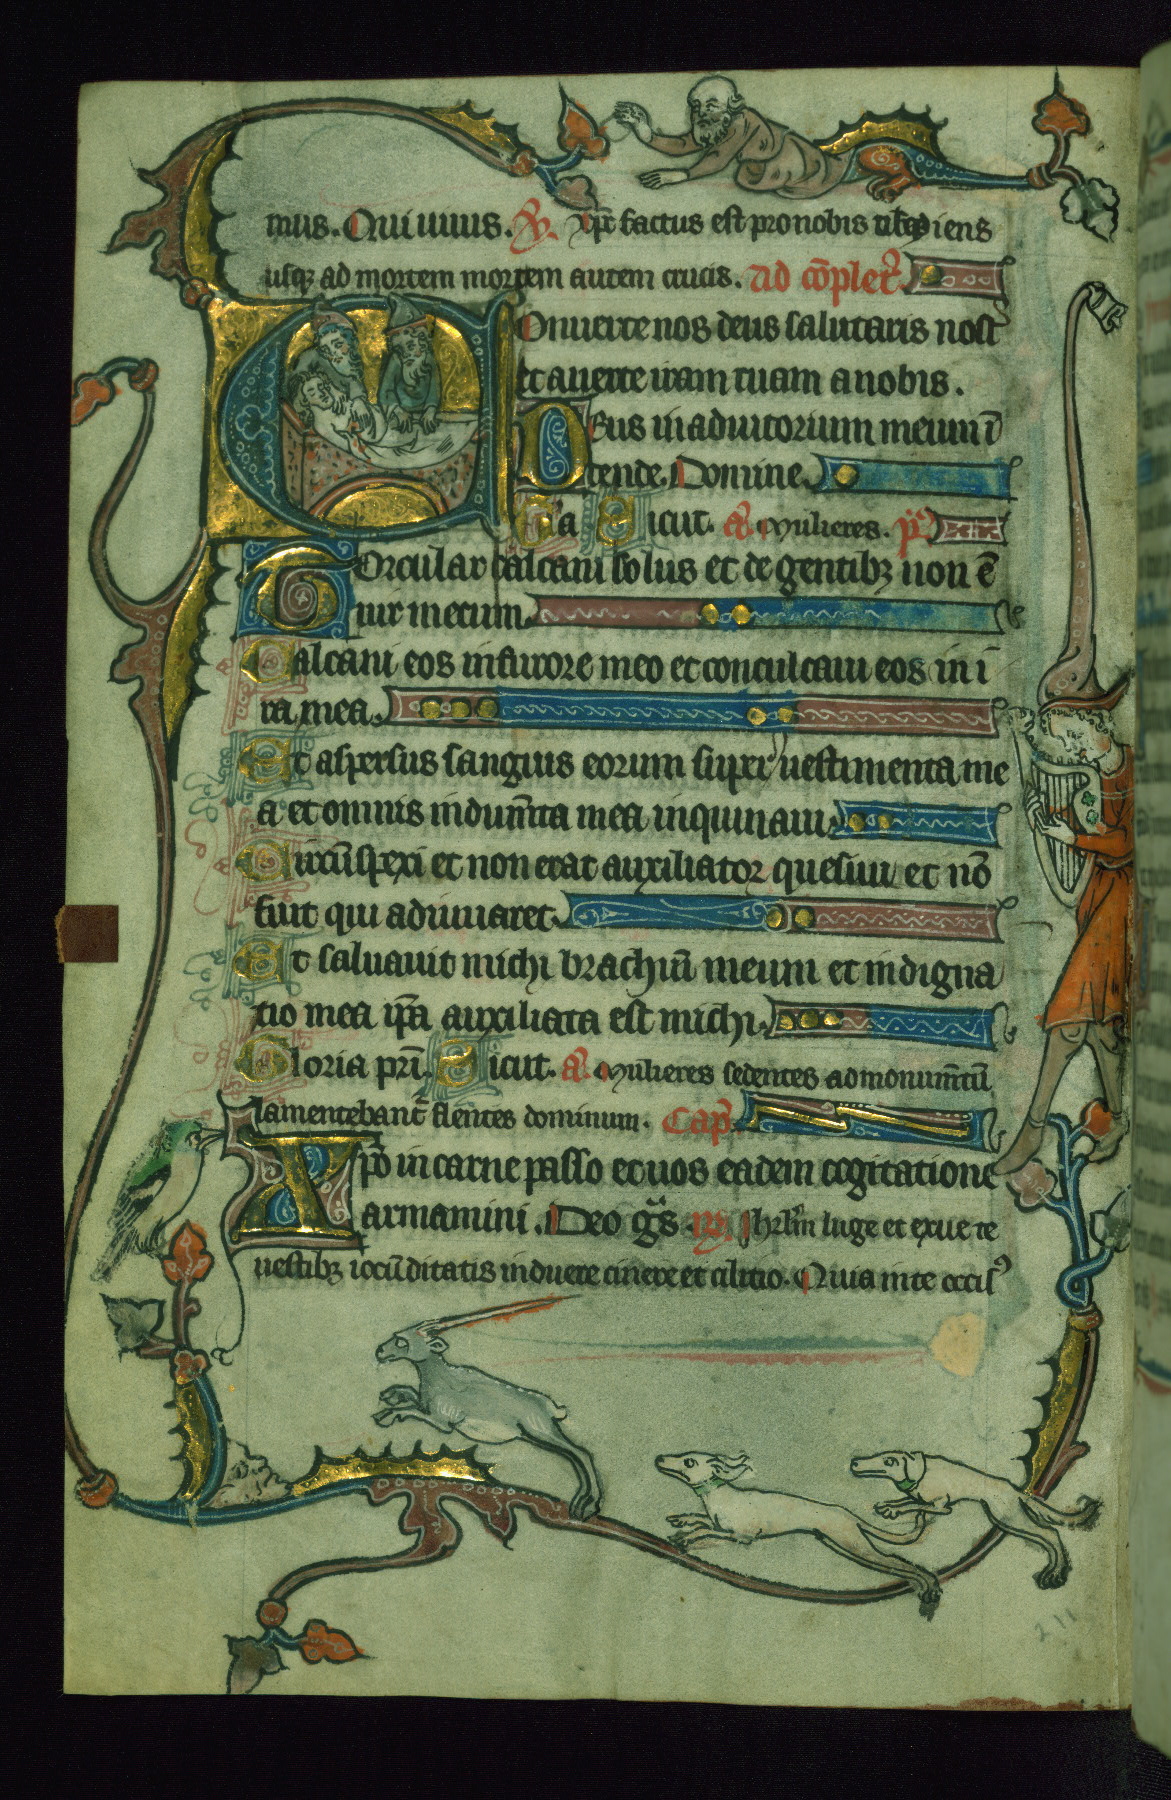 mus. Qui uiuis. V̄. xp̄c factus est pro nobis obediens
usq̨ ad mortem mortem autem crucis. ad cōplet᷒.
Conuerte nos deus salutaris nost᷒
et auerte iram tuam a nobis.
Deus in adiutorium meum ī
tende. Domine
Gl̄a Sicut. ā. Mulieres. p̄s
Torcular calcaui solus et de gentibꝫ non ē
uir mecum
Calcaui eos in furore meo et conculcaui eos in i
ra mea.
Et aspersus sanguis eorum super uestimenta me
a et omnis indum̄ta mea inquinaui.
Circūspexi et non erat auxiliator quesiui et nō
fuit qui adiuuaret
Et saluauit michi brachiū meum et indigna
tio mea ip̄a auxiliata est michi.
Gloria pri. Sicut. ā. Mulieres sedentes ad monum̄tū
lamentebant᷒ flentes dominum. Cap̄.
Xp̄o in carne passo et uos eadem cogitatione
armamini. Deo gr̄s. R̄. Jhrl̄m luge et exue te
uestibꝫ iocūditatis induere cinere et cilicio. Quia in te occis᷒
211